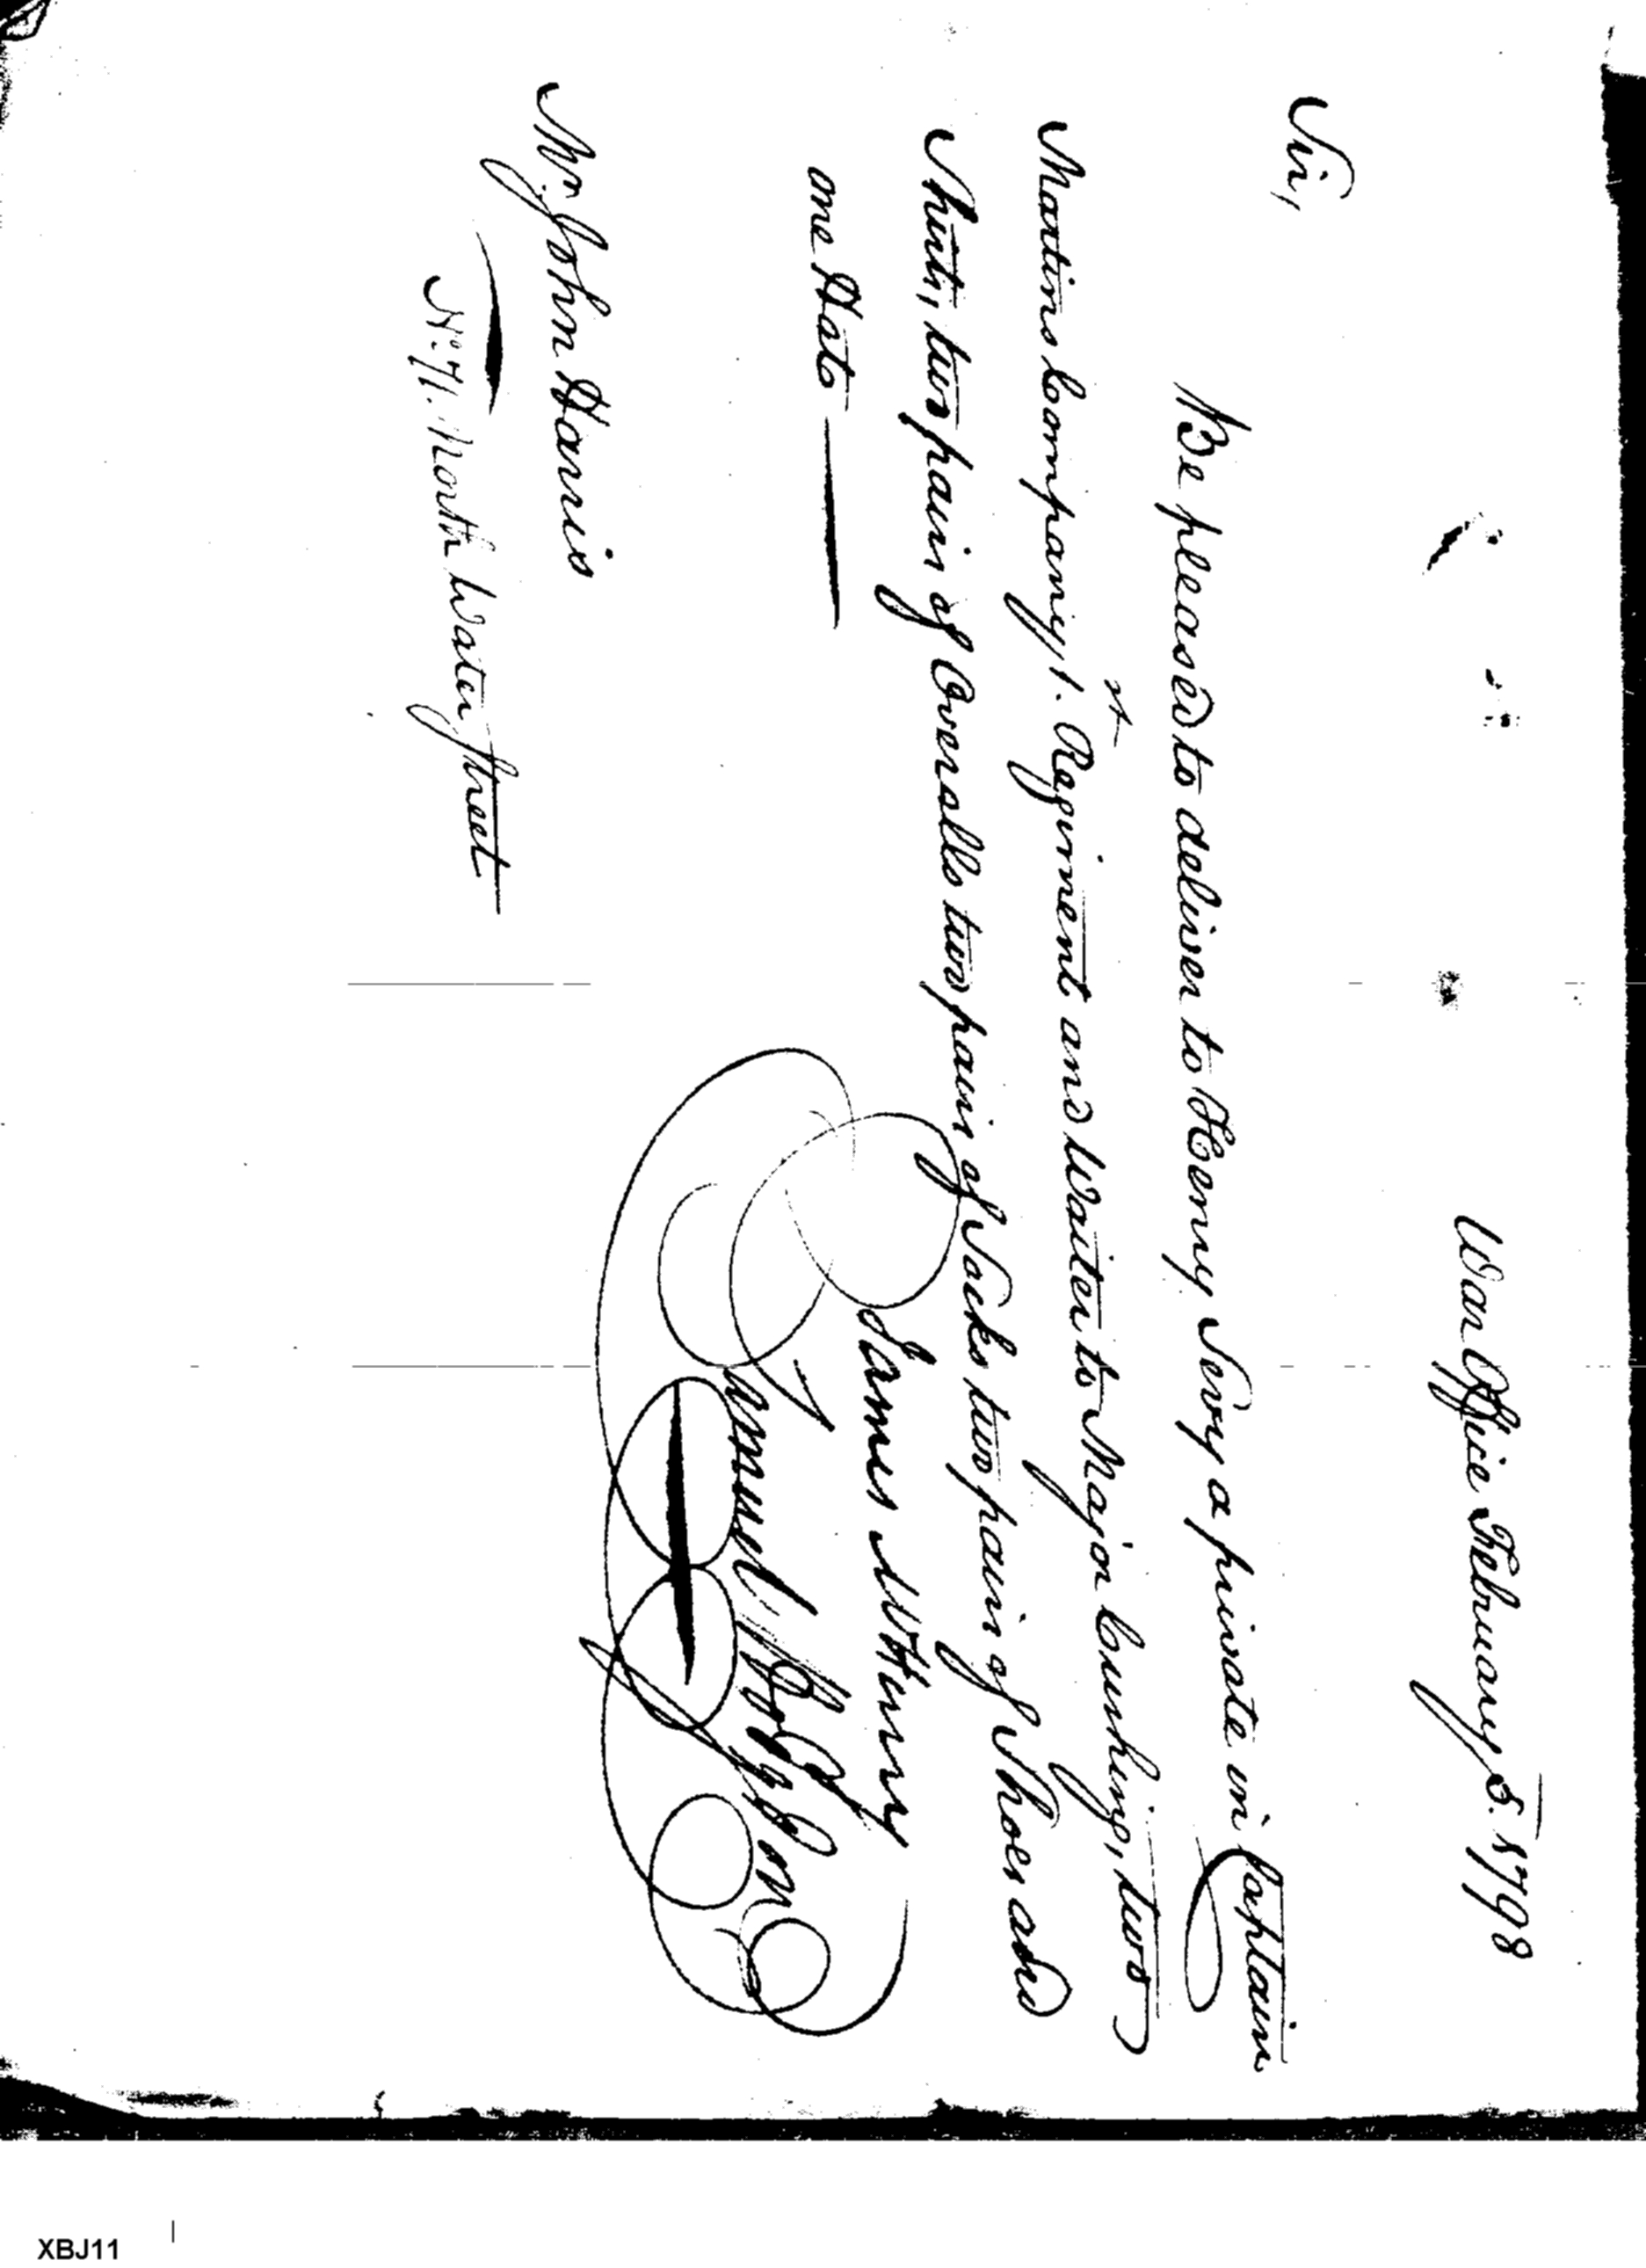 War Office February 5. 1798
Sir,
Be pleased to deliver to Henry Sevey a private in Captain
Martins Company, 1.st Regiment and Waiter to Major Cushing, two
Shirts, two pair of Overalls two pair of Socks two pair of Shoes and
one Hat
James McHenry
Samuel Hodgdon
Mr. John Harris
No. 71. North Water Street
XBJ11